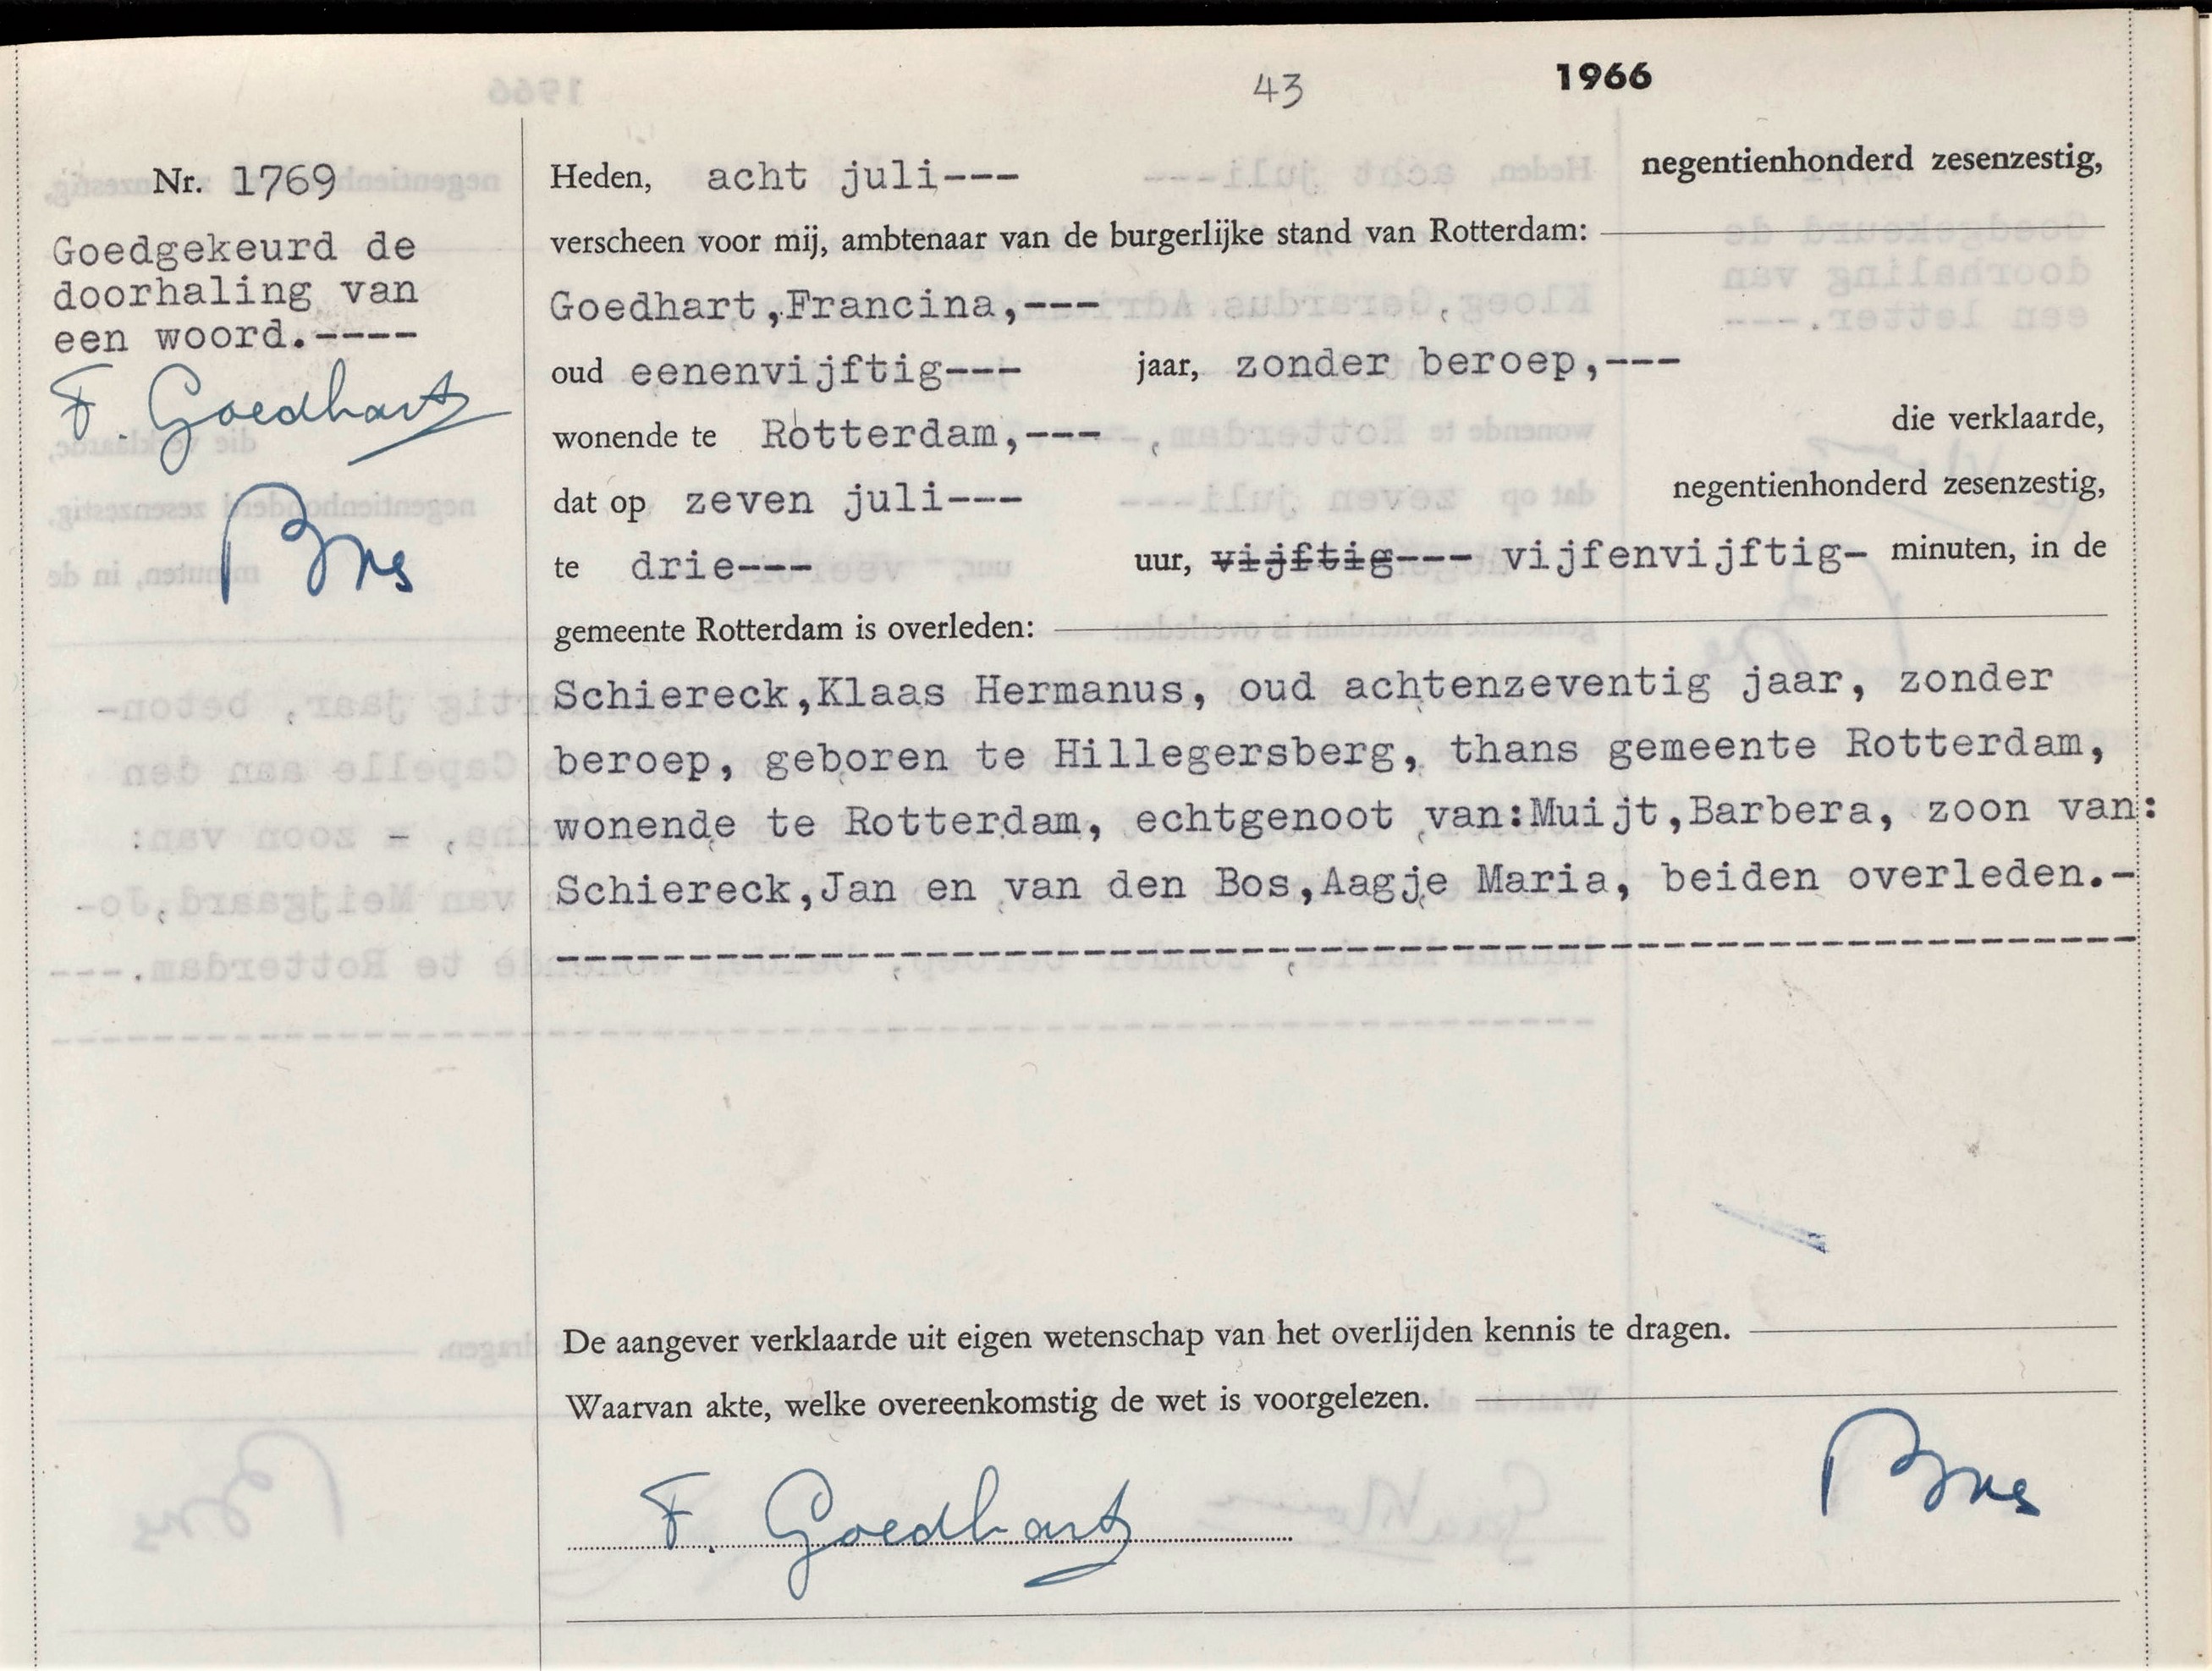 43
1966
Nr. 1769
Goedgekeurd de
doorhaling van
een woord.----
F. Goedhart
Heden, acht juli--- negentienhonderd zesenzestig,
verscheen voor mij, ambtenaar van de burgerlijke stand van Rotterdam:
Goedhart,Francina,---
oud eenenvijftig--- jaar, zonder beroep,---
wonende te Rotterdam,--- die verklaarde,
dat op zeven juli--- negentienhonderd zesenzestig,
te drie--- uur, vijftig--- vijfenvijftig- minuten, in de
gemeente Rotterdam is overleden:
Schiereck,Klaas Hermanus, oud achtenzeventig jaar, zonder
beroep, geboren te Hillegersberg, thans gemeente Rotterdam,
wonende te Rotterdam, echtgenoot van:Muijt,Barbera, zoon van:
Schiereck,Jan en van den Bos,Aagje Maria, beiden overleden.-
De aangever verklaarde uit eigen wetenschap van het overlijden kennis te dragen.
Waarvan akte, welke overeenkomstig de wet is voorgelezen.
F. Goedhart